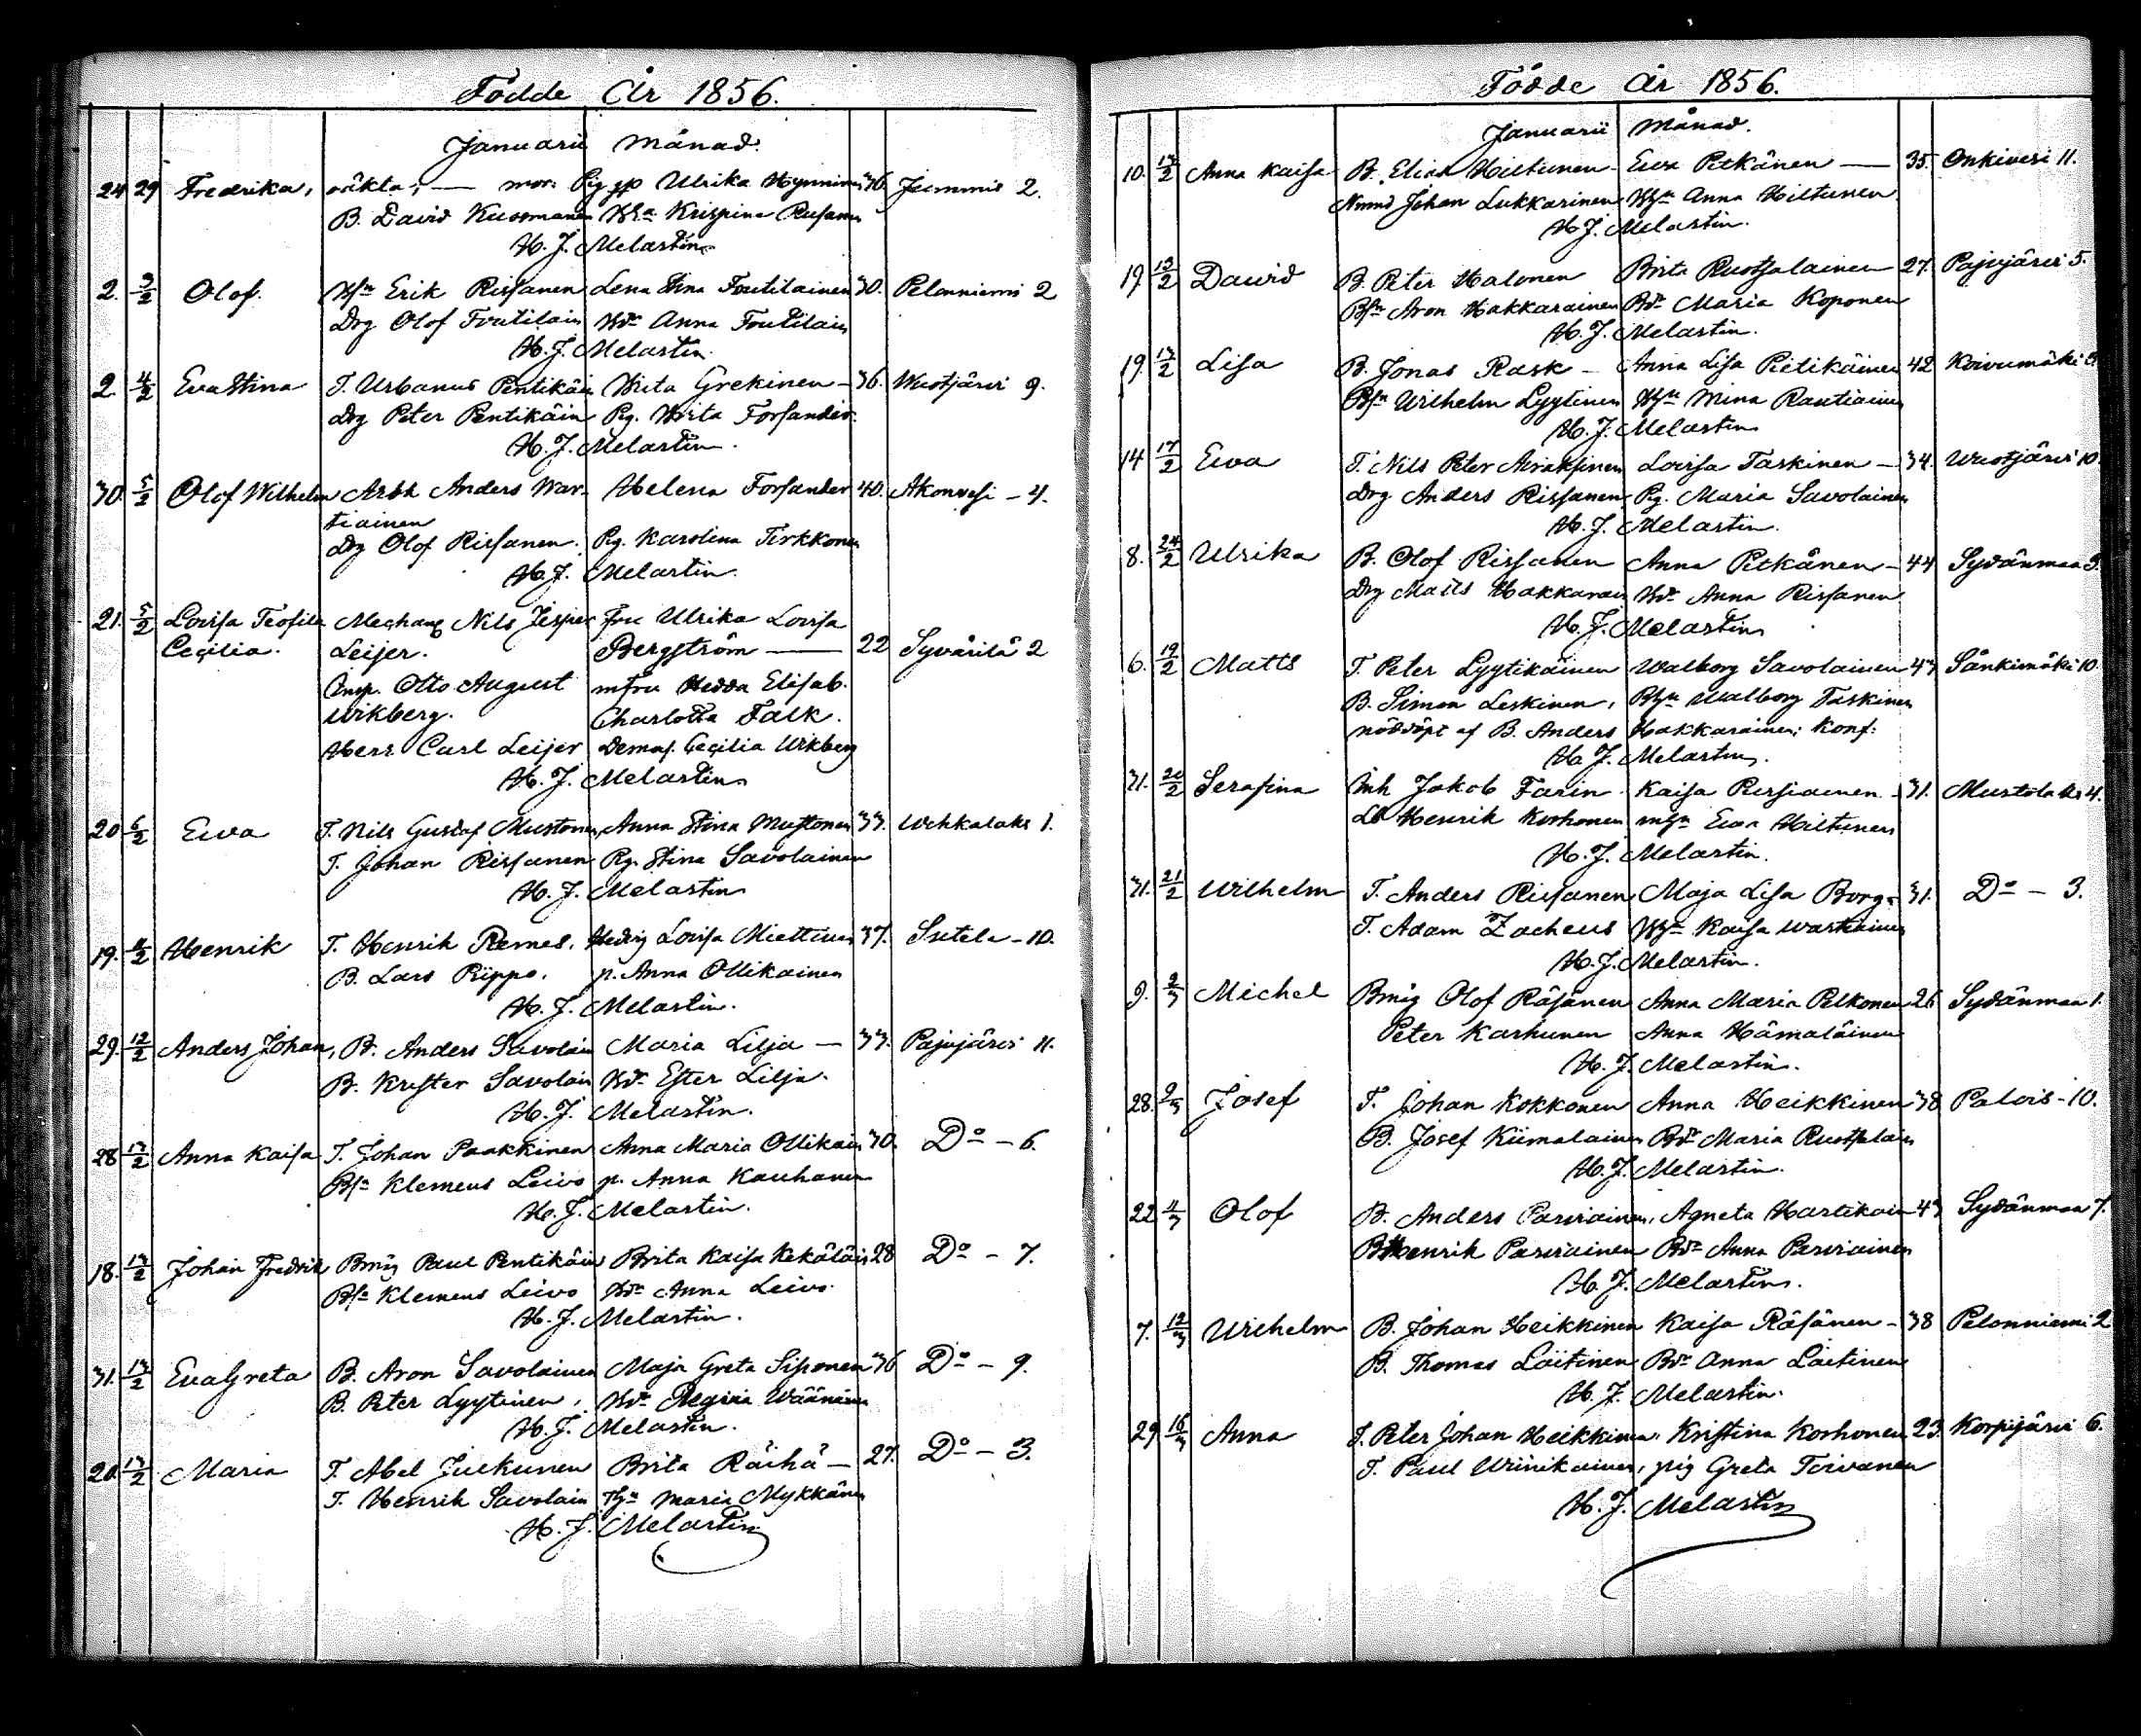 Födde År 1856.
Januarii Månad.
24 29 Fredrika, oäkta; — mor: Pig Ulrika Hynninen 36. Jummis 2.
B. David Kuosmanen Krispina Rusanen
H. J. Melartin
2. 3/2 Olof. Erik Rissanen Lena Stina Toutilainen 30. Pelonniemi 2
Drg Olof Toutilain Anna Toutilain
H. J. Melartin
2. 4/2 Eva Stina T. Urbanus Pentikäin Brita Grekinen — 36. Wuotjärvi 9.
Drg Peter Pentikäin Pg. Brita Forsander.
H. J. Melartin.
30. 5/2 Olof Wilhelm Arbk Anders War- Helena Forsander 40. Akonvesi - 4.
tiainen
Drg Olof Rissanen. Pg. Karolina Tirkkonen
H. J. Melartin.
21. 5/2 Lovisa Teofila Nils Jesper Fru Ulrika Lovisa
Cecilia. Leijer. Bergström — 22 Syvärilä 2
Insp. Otto August mfru Hedda Elisab.
Wikberg. Charlotta Falk.
Herr Carl Leijer Demas. Cecilia Wikberg
H. J. Melartin
20 6/2 Ewa T. Nils Gustaf Mustonen, Anna Stina Mustonen 33. Wehkalaks 1.
T. Johan Rissanen Pg. Stina Savolainen
H. J. Melartin
19. Henrik T. Henrik Remes. Hedvig Lovisa Miettinen 37. Sutela - 10.
B. Lars Rippo. p. Anna Ollikainen
H. J. Melartin.
29. 12/2 Anders Johan, B. Anders Savolain Maria Lilja — 33. Pajujärvi 11.
B. Krister Savolain Ester Lilja.
H. J. Melartin.
28 13/2 Anna Kaisa T. Johan Paakkinen Anna Maria Ollikain 30. Do - 6.
Klemens Leivo p. Anna Kauhanen
H. J. Melartin.
18. 13/2 Johan Fredrik Bmåg Paul Pentikäin Brita Kaisa Kekäläin 28 Do - 7.
Klemens Leivo Anna Leivo.
H. J. Melartin.
31. 13/2 Eva Greta B. Aron Savolainen Maja Greta Siponen 36 Do - 9.
B. Peter Lyytinen, Regina Wäänäinen
H. J. Melartin.
20. 13/2 Maria T. Abel Juckunen Brita Räihä — 27. Do - 3.
T. Henrik Savolain Maria Mykkänen
H. J. Melartin
Födde År 1856.
Januarii Månad.
10. 13/2 Anna Kaisa B. Elias Hiltunen - Ewa Pitkänen — 35. Onkivesi 11.
Johan Lukkarinen Anna Hiltunen
H. J. Melartin.
19. 13/2 David B. Peter Halonen Brita Ruotsalainen 27. Pajujärvi 5.
Aron Hakkarainen Maria Koponen
H. J. Melartin.
19. 13/2 Lisa B. Jonas Rask - Anna Lisa Pietikäinen 42 Koivumäki
Wilhelm Lyytinen Mina Rautiainen
H. J. Melartin
14 17/2 Ewa T. Nils Peter Airaksinen Lovisa Taskinen — 34. Wuotjärvi 10
Drg Anders Rissanen Pg. Maria Savolainen
H. J. Melartin.
8. 24/2 Ulrika B. Olof Rissanen Anna Pitkänen — 44 Sydänmaa 9.
Drg Matts Hakkarain Anna Rissanen
H. J. Melartin
6. 19/2 Matts T. Peter Lyytikäinen Walborg Savolainen 43 Sänkimäki 10.
B. Simon Leskinen, Walborg Taskinen
nöddöpt af B. Anders Hakkarainen; Konf:
H. J. Melartin.
31. 20/2 Serafina Inh Jakob Farin Kaisa Persiainen - 31. Mustolaks 4.
Henrik Korhonen Ewa Hiltunen
H. J. Melartin.
31. 21/2 Wilhelm T. Anders Rissanen Maja Lisa Borg - 31. Do - 3.
T. Adam Zacheus Kaisa Wartiainen
H. J. Melartin.
9. 2/3 Michel Bmåg Olof Räsänen Anna Maria Pelkonen 26 Sydänmaa 1.
Peter Karhunen Anna Hämäläinen
H. J. Melartin.
28. 9/3 Josef T. Johan Kokkonen Anna Heikkinen 38 Palois - 10.
B. Josef Kiimalainen Maria Ruotsalain
H. J. Melartin.
22 11/3 Olof B. Anders Parviainen, Agneta Hartikain 43 Sydänmaa 7.
B Henrik Parviainen Anna Parviainen
H. J. Melartin.
7. 12/3 Wilhelm B. Johan Heikkinen Kaisa Räsänen - 38 Pelonniemi 2
B. Thomas Laitinen Anna Laitinen
H. J. Melartin.
29 16/3 Anna T. Peter Johan Heikkinen. Kristina Korhonen 23. Korpijärvi 6.
T. Paul Wiinikainen, pig Greta Toivanen
H. J. Melartin